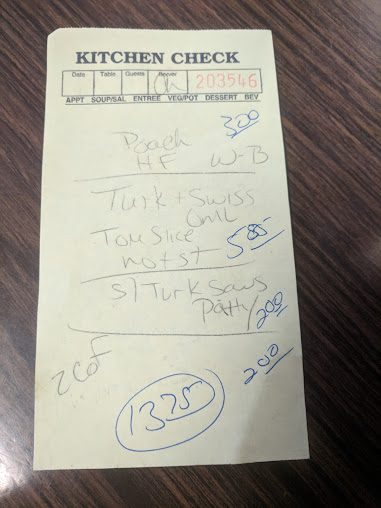 KITCHEN CHECK
Date Table Guests Server 203546
APPT SOUP/SAL ENTREE VEG/POT DESSERT BEV
Poach 300
HF W-B
Turk + Swiss
OML
Tom Slice
no tst 585
S/Turk Saus
Patty 200
2 Cof 200
1375